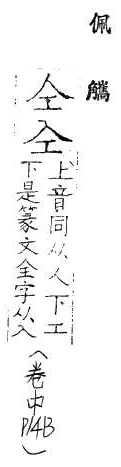 佩觿
仝㒰
上音同从人下工
下是篆文全字从入
(卷中
P14B)